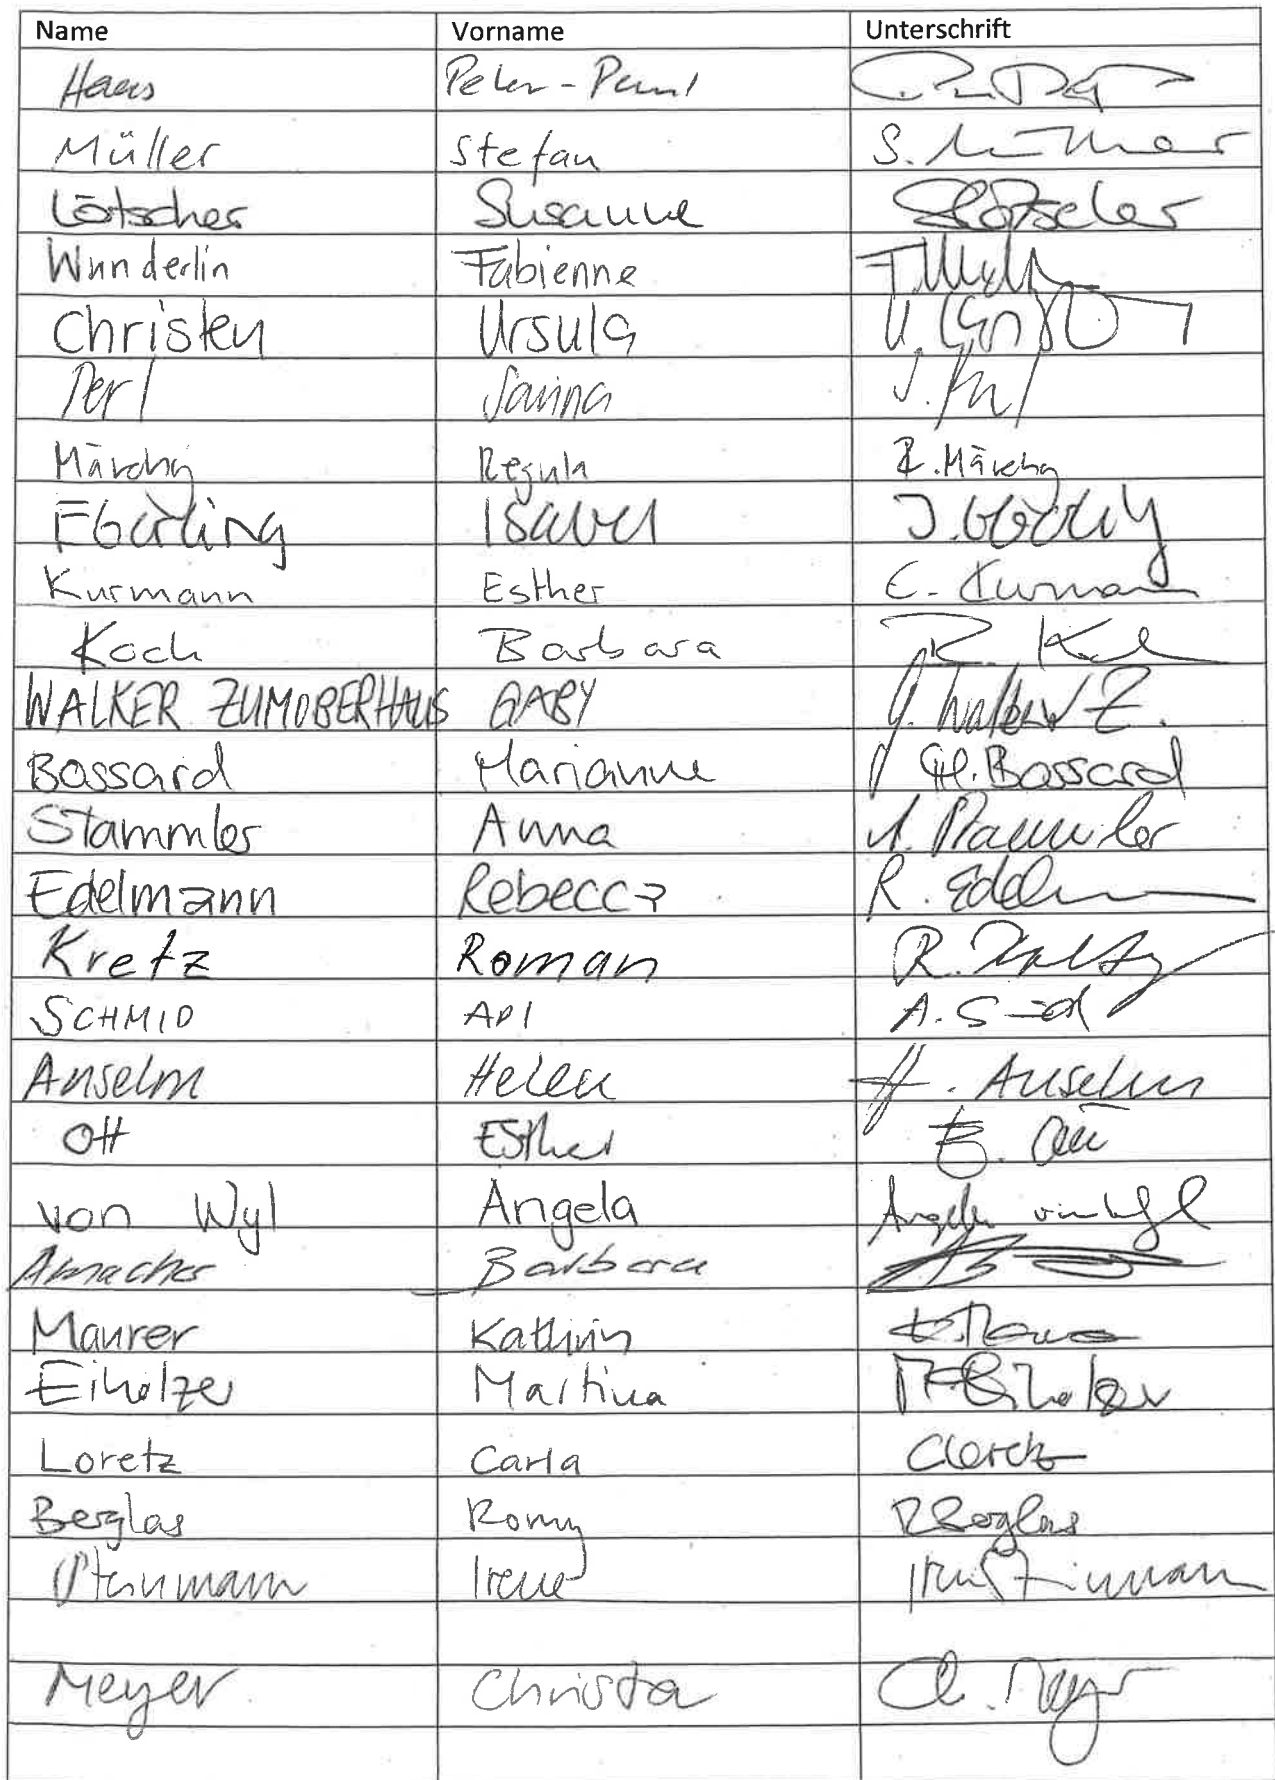 Name Vorname Unterschrift
Haas Peter-Paul
Müller Stefan S. Müller
Lötscher Susanne SLötscher
Wunderlin Fabienne
Christen Ursula U.
Perl Janina J. Perl
Märchy Regula R. Märchy
Eberling Isabel I. Eberling
Kurmann Esther E. Kurmann
Koch Barbara B. Koch
WALKER ZUMOBERHAUS GABY G. Walker Z.
Bossard Marianne M. Bossard
Stammler Anna A. Stammler
Edelmann Rebecca R. Edelmann
Kretz Roman R. Kretz
SCHMID ADI A. Schmid
Anselm Helen H. Anselm
Ott Esther E. Ott
von Wyl Angela Angela von Wyl
Amacher Barbara
Maurer Kathrin K. Maurer
Eiholzer Martina M. Eiholzer
Loretz Carla CLoretz
Berglas Romy RBerglas
Steinmann Irene Irene Steinmann
Meyer Christa Ch. Meyer